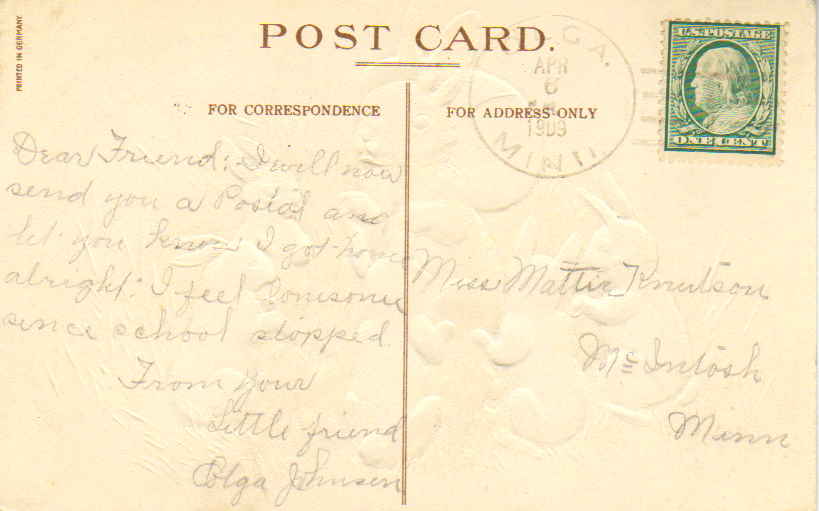 PRINTED IN GERMANY
POST CARD.
FOR CORRESPONDENCE
FOR ADDRESS ONLY
GA.
APR
6
1909
MINN.
U.S. POSTAGE
ONE CENT
Dear Friend: I will now
send you a Postal and
let you know I got home
alright: I feel lonesome
since school stopped.
From your
Little friend
Olga Johnsen
Miss Mattie Knutson
McIntosh
Minn